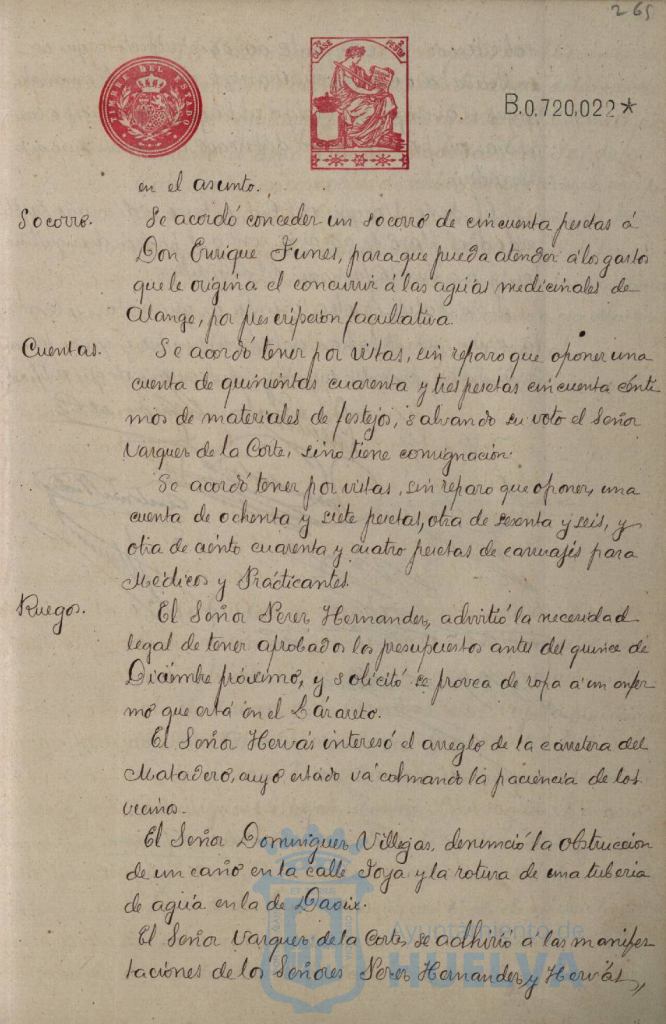 265
TIMBRE DEL ESTADO
CLASE
PESTAS
B.0,720,022*
en el asunto.
Socorro.
Se acordó conceder un socorro de cincuenta pesetas á
Don Enrique Funes, para que pueda atender á los gastos
que le origina el concurrir á las aguas medicinales de
Alange, por prescripcion facultativa.
Cuentas.
Se acordó tener por vistas, sin reparo que oponer una
cuenta de quinientas cuarenta y tres pesetas cincuenta cénti
mos de materiales de festejos, salvando su voto el Señor
Vazquez de la Corte, sino tiene consignación.
Se acordó tener por vistas, sin reparo que oponer, una
cuenta de ochenta y siete pesetas, otra de sesenta y seis, y
otra de ciento cuarenta y cuatro pesetas de carruajes para
Médicos y Practicantes.
Ruegos.
El Señor Perez Hernandez, advirtió la necesidad
legal de tener aprobados los presupuestos antes del quince de
Diciembre próximo, y solicitó se provea de ropa á un enfer
mo que está en el Lázareto.
El Señor Hervás interesó el arreglo de la carretera del
Matadero, cuyo estado vá colmando la paciencia de los
vecinos.
El Señor Dominguez Villegas, denunció la obstruccion
de un caño en la calle Joya y la rotura de una tuberia
de agua en la de Daoiz.
El Señor Vazquez de la Corte, se adhirió a las manifes
taciones de los Señores Perez Hernandez y Hervás,
Ayuntamiento de
HUELVA